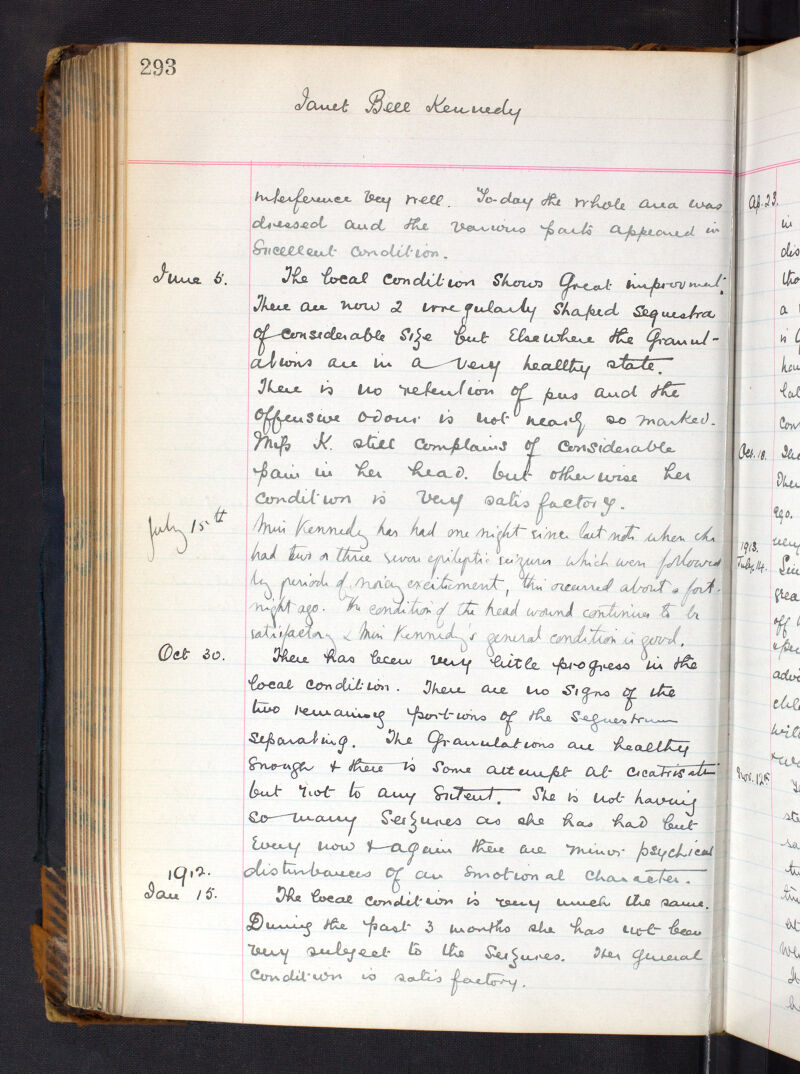 293
Janet Bell Kennedy
interference very well. To-day the whole area was
dressed and the various parts appeared in
Excellent condition.
June 5. The local condition shows Great improvment.
There are now 2 irregularly shaped sequestra
of considerable size but Elsewhere the Granul-
ations are in a very healthy state.
There is no retention of pus and the
Offensive odour is not nearly so marked.
Miss K. still complains of considerable
pain in her head. but otherwise her
condition is very satisfactory.
July 15th Miss Kennedy has had one night since last note when she
had two or three severe epileptic seizures which were followed
by periods of noisy excitement, this occurred about a fort-
night ago. The condition of the head wound continues to be
satisfactory & Miss Kennedy's general condition is good.
Oct 30. There has been very little progress in the
local condition. There are no signs of the
two remaining portions of the Sequestrum
separating. The Granulations are healthy
Enough & there is some attempt at cicatrisation
but not to any Extent. She is not having
so many Seizures as she has had but
Every now & again there are minor psychical
disturbances of an Emotional character.
1912.
Jan 15. The local condition is very much the same.
During the past 3 months she has not been
very subject to the Seizures. Her general
condition is satisfactory.
Ap. 23.
in
dis
the
a
is
hav
lat
Con
Oct. 18. The
Ther
ago.
very
1913.
July 14. Sin
grea
off
adv
chl
wil
Nov. 12th